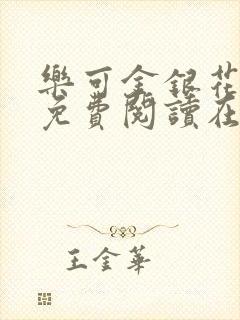 樂可金銀花
免費閱讀在
王金華